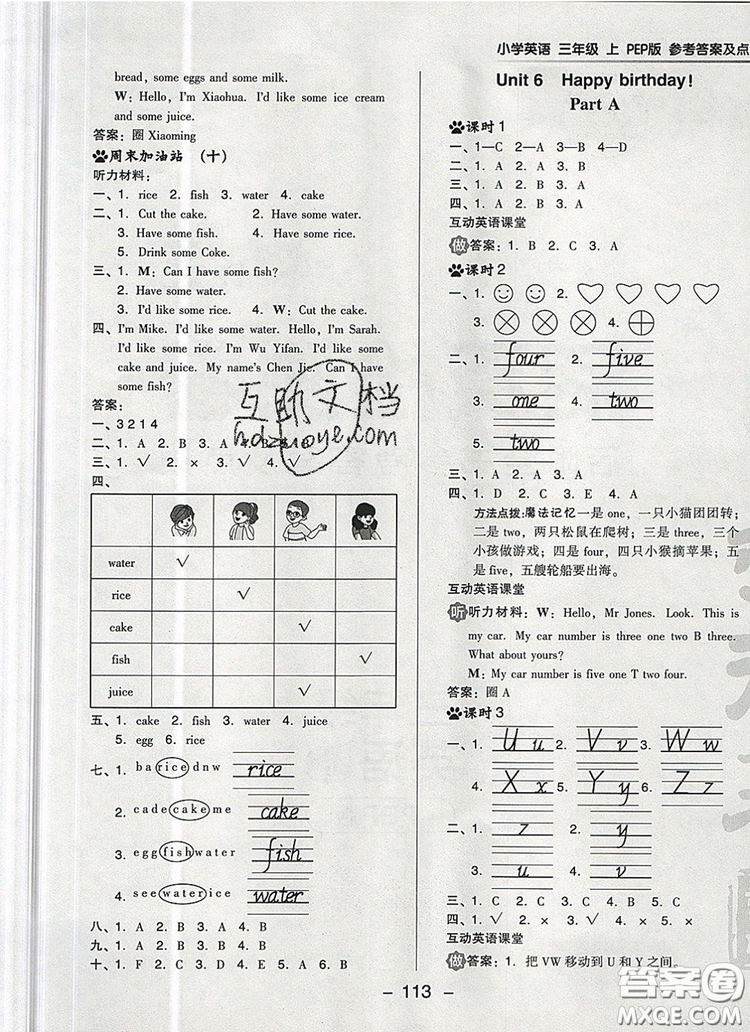 小学英语 三年级 上 PEP版 参考答案及点
bread, some eggs and some milk.
W: Hello, I'm Xiaohua. I'd like some ice cream
and some juice.
答案: 圈 Xiaoming
周末加油站 (十)
听力材料:
一、1. rice 2. fish 3. water 4. cake
二、1. Cut the cake. 2. Have some water.
3. Have some fish. 4. Have some rice.
5. Drink some Coke.
三、1. M: Can I have some fish?
2. Have some water!
3. I'd like some rice. 4. W: Cut the cake!
四、I'm Mike. I'd like some water. Hello, I'm Sarah.
I'd like some rice. I'm Wu Yifan. I'd like some
cake and juice. My name's Chen Jie. Can I have
some fish?
答案:
一、3 2 1 4
二、1. A 2. B 3. A 4. B
三、1. √ 2. × 3. √ 4. √
四、
water √
rice √
cake √
fish √
juice √
五、1. cake 2. fish 3. water 4. juice
5. egg 6. rice
七、1. baricednw rice
2. cadecakeme cake
3. eggfishwater fish
4. seewaterice water
八、1. A 2. B 3. B 4. A 5. B
九、1. A 2. B 3. A 4. B 5. B
十、1. F 2. C 3. D 4. E 5. A 6. B
Unit 6 Happy birthday!
Part A
课时 1
一、1—C 2—A 3—B 4—D
二、1. A 2. B 3. A
三、1. A 2. B 3. A
四、1. A 2. A 3. B 4. A
互动英语课堂
做 答案: 1. B 2. C 3. A
课时 2
一、1. 2.
3. 4.
二、1. four 2. five
3. one 4. two
5. two
三、1. A 2. A
四、1. D 2. C 3. E 4. A
方法点拨: 魔法记忆 一是 one, 一只小猫团团转;
二是 two, 两只松鼠在爬树; 三是 three, 三个小
孩做游戏; 四是 four, 四只小猴摘苹果; 五
是 five, 五艘轮船要出海。
互动英语课堂
听 听力材料: W: Hello, Mr Jones. Look. This is
my car. My car number is three one two B three.
What about yours?
M: My car number is five one T two four.
答案: 圈 A
课时 3
一、1. U u 2. V v 3. W w
4. X x 5. Y y 6. Z z
二、1. z 2. y
3. u 4. v
三、1. C 2. C 3. C 4. B 5. B
四、1. √ 2. × 3. √ 4. √ 5. ×
互动英语课堂
做 答案: 1. 把 VW 移动到 U 和 Y 之间。
- 113 -
互助文档
hdzuoye.com
答案圈
MXQE.COM